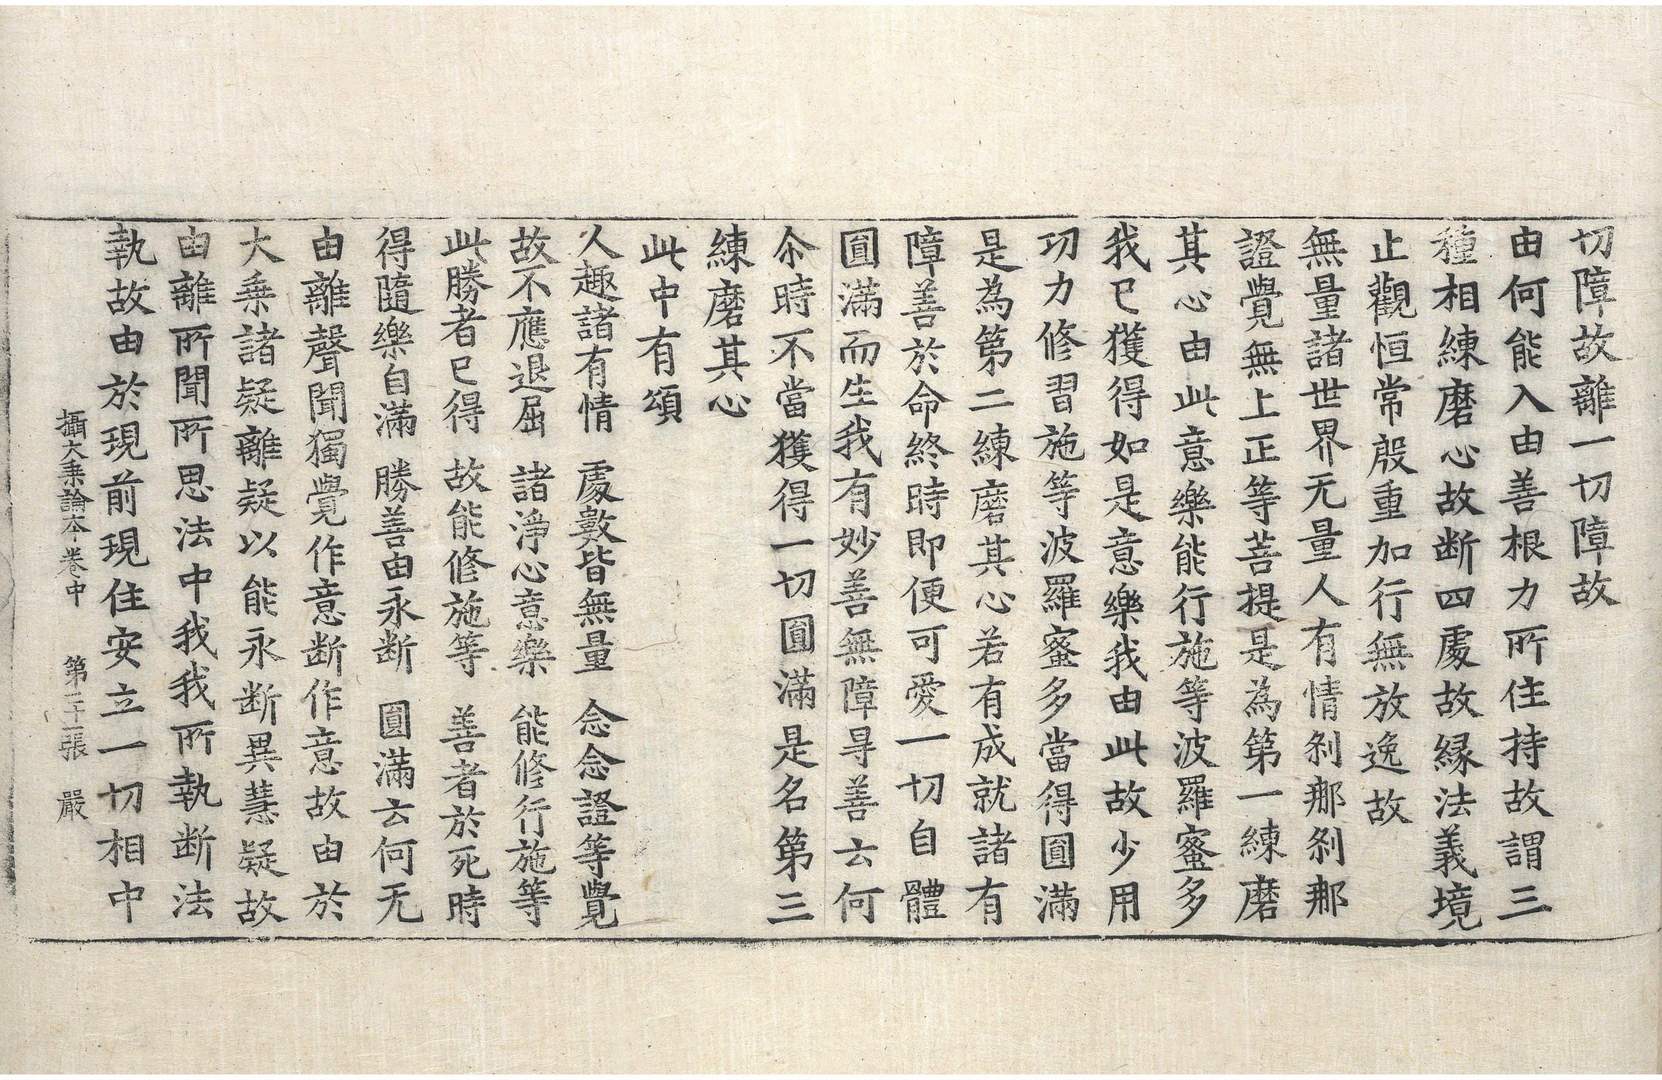 切障故離一切障故
由何能入由善根力所住持故謂三
種相練磨心故断四處故縁法義境
止觀恒常殷重加行無放逸故
無量諸世界无量人有情刹那刹那
證覺無上正等菩提是為第一練磨
其心由此意樂能行施等波羅蜜多
我已獲得如是意樂我由此故少用
功力修習施等波羅蜜多當得圓滿
是為第二練磨其心若有成就諸有
障善於命終時即便可愛一切自體
圓滿而生我有妙善無障㝵善云何
尒時不當獲得一切圓滿是名第三
練磨其心
此中有頌
人趣諸有情 處數皆無量 念念證等覺
故不應退屈 諸淨心意樂 能修行施等
此勝者已得 故能修施等 善者於死時
得隨樂自滿 勝善由永断 圓滿云何无
由離聲聞獨覺作意断作意故由於
大乗諸疑離疑以能永断異慧疑故
由離所聞所思法中我我所執断法
執故由於現前現住安立一切相中
攝大乗論本卷中 第二十張 嚴